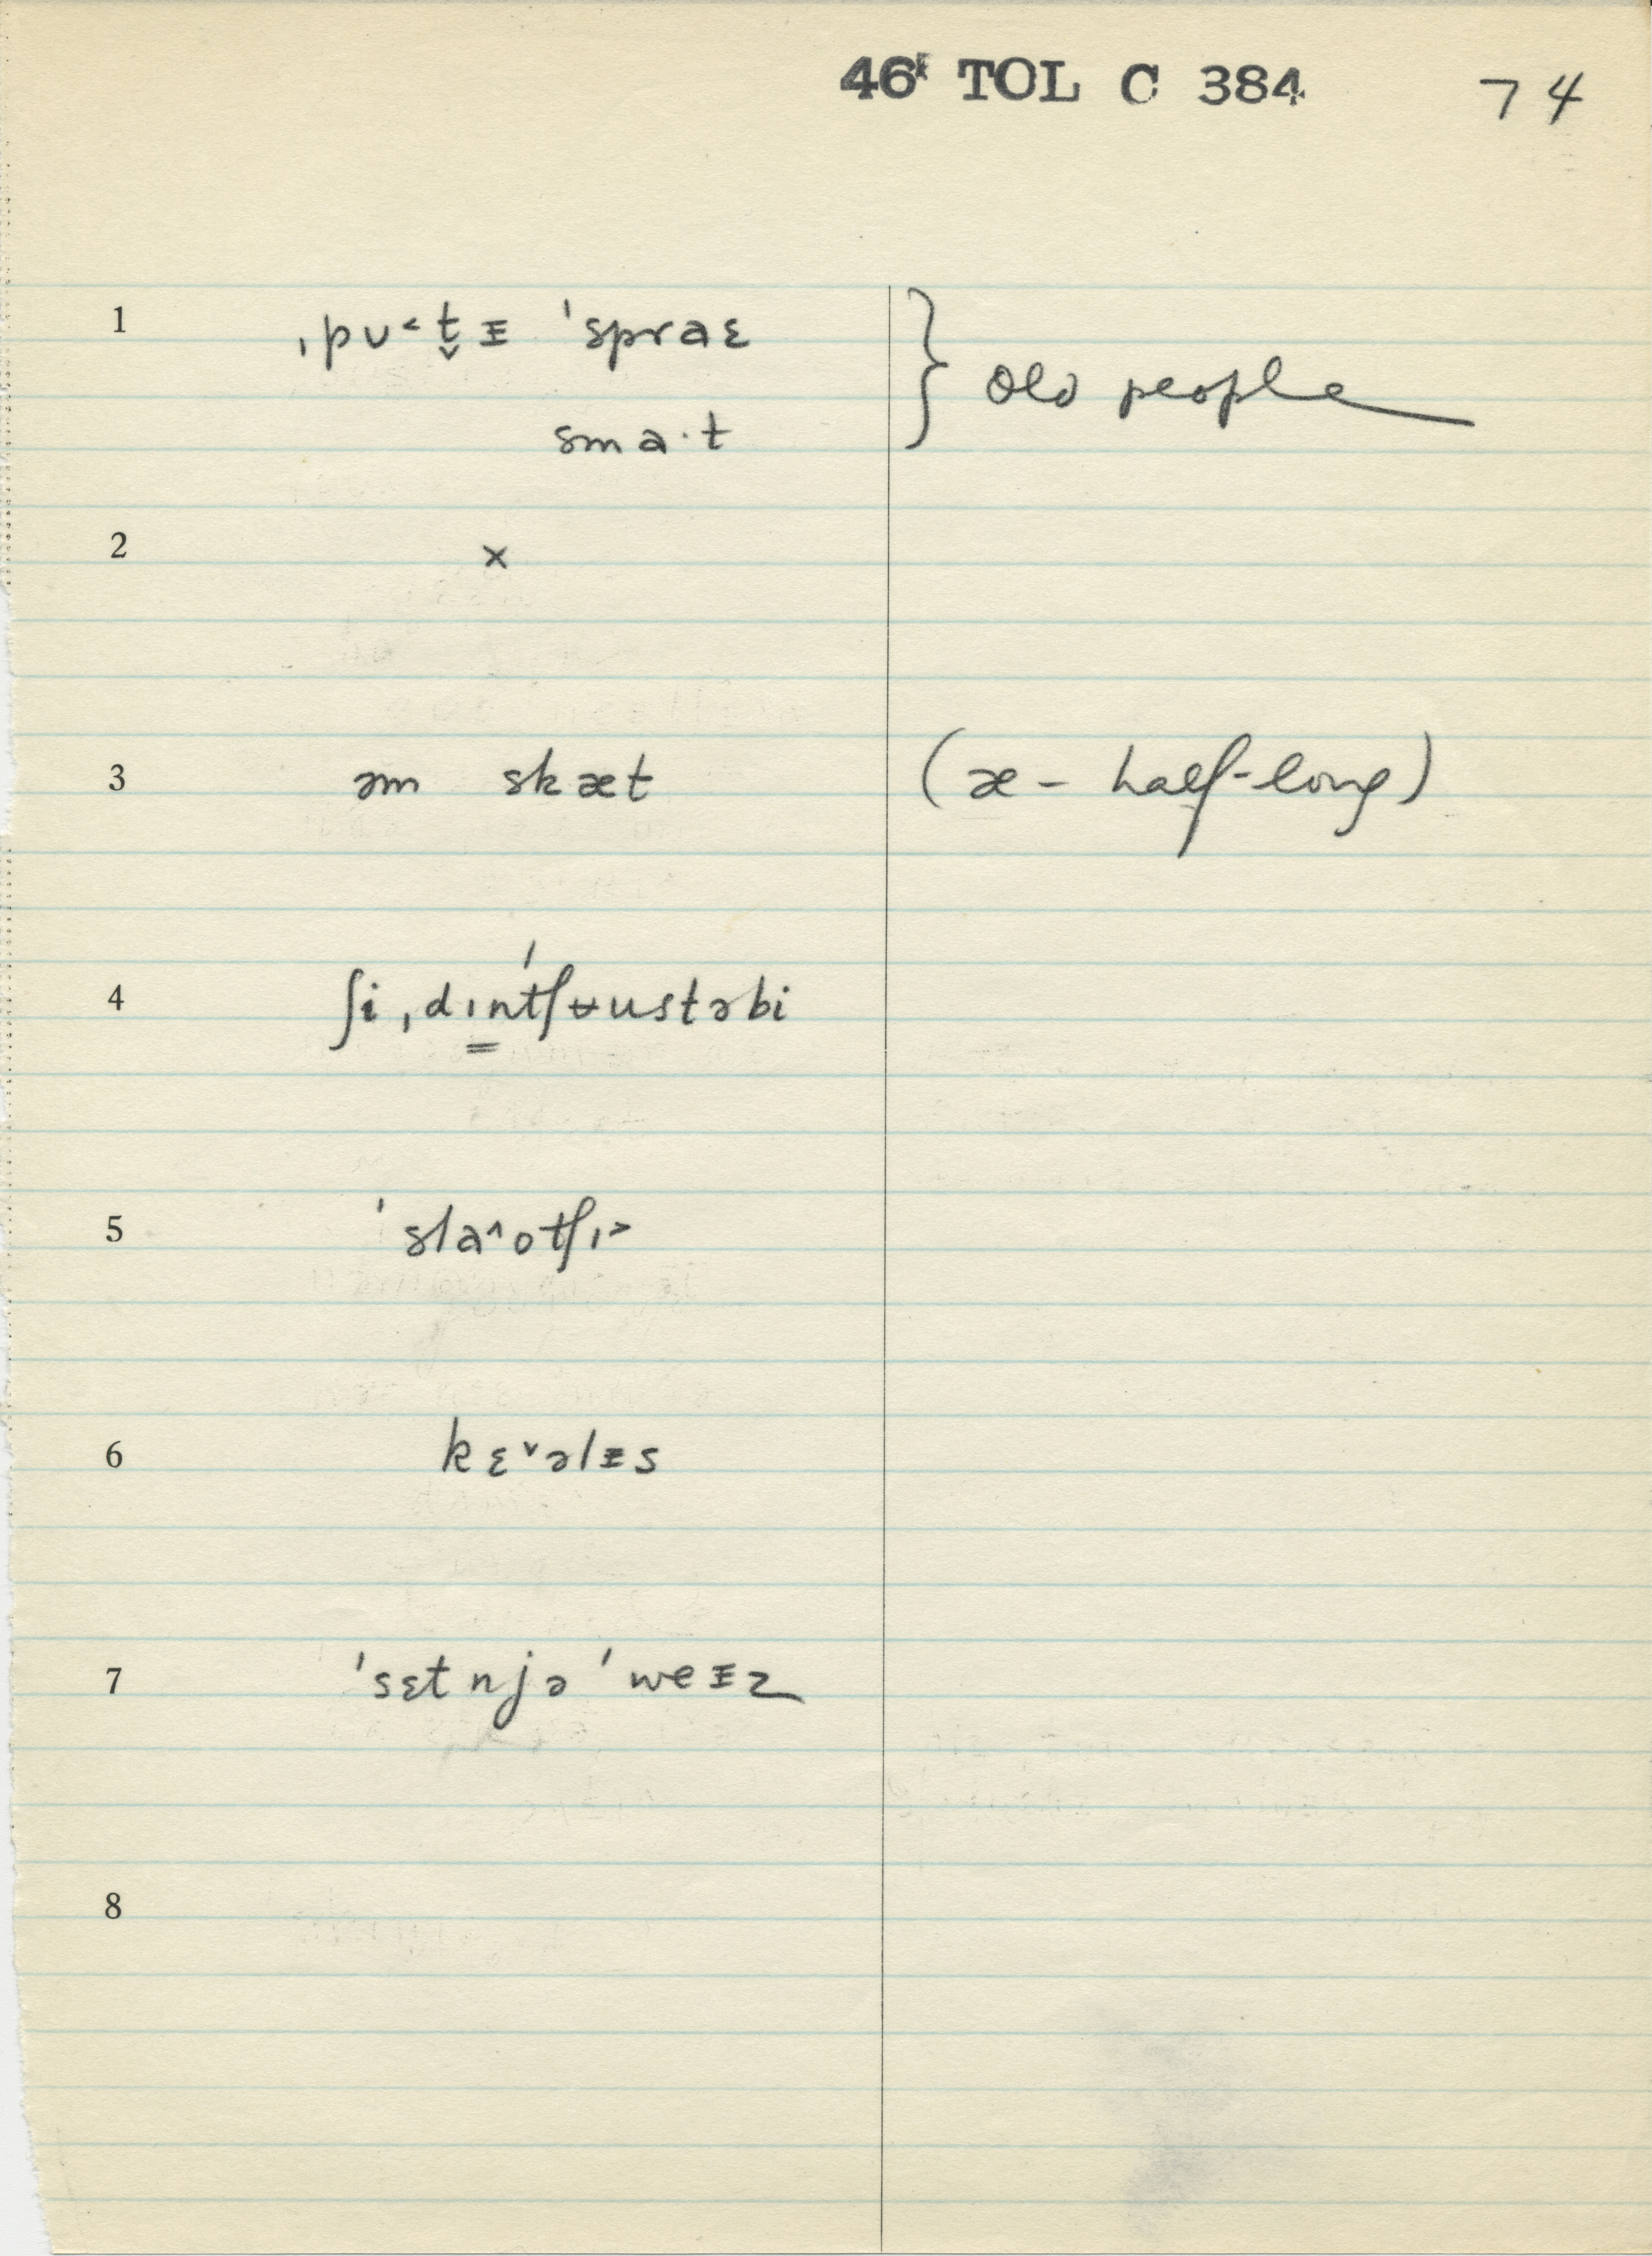 46 TOL C 384 74
1 ˌpʊ˂t̬ᵻ ˈspraɛ } old people
smaˑt
2 x
3 əm skæt (æ – half-long)
4 ʃi ˌdɪ̳ntˈʃʉustəbi
5 ˈsla˄otʃɪ˃
6 kɛ˅əlᵻs
7 ˈsɛtnjə ˈweᵻz
8